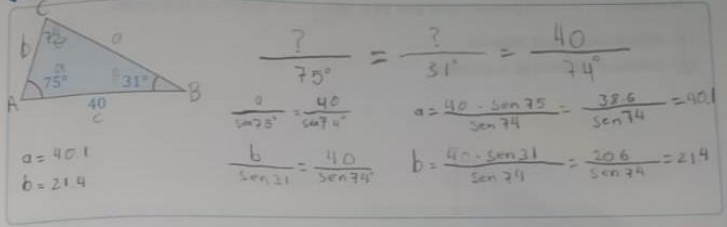 C
b 74° a
75° 31°
A 40 B
c
a = 40.1
b = 21.4
? / 75° = ? / 31° = 40 / 74°
a / sen75° = 40 / sen74° a = 40 · sen75 / sen74 = 38.6 / sen74 = 40.1
b / sen31 = 40 / sen74° b = 40 · sen31 / sen74 = 20.6 / sen74 = 21.4